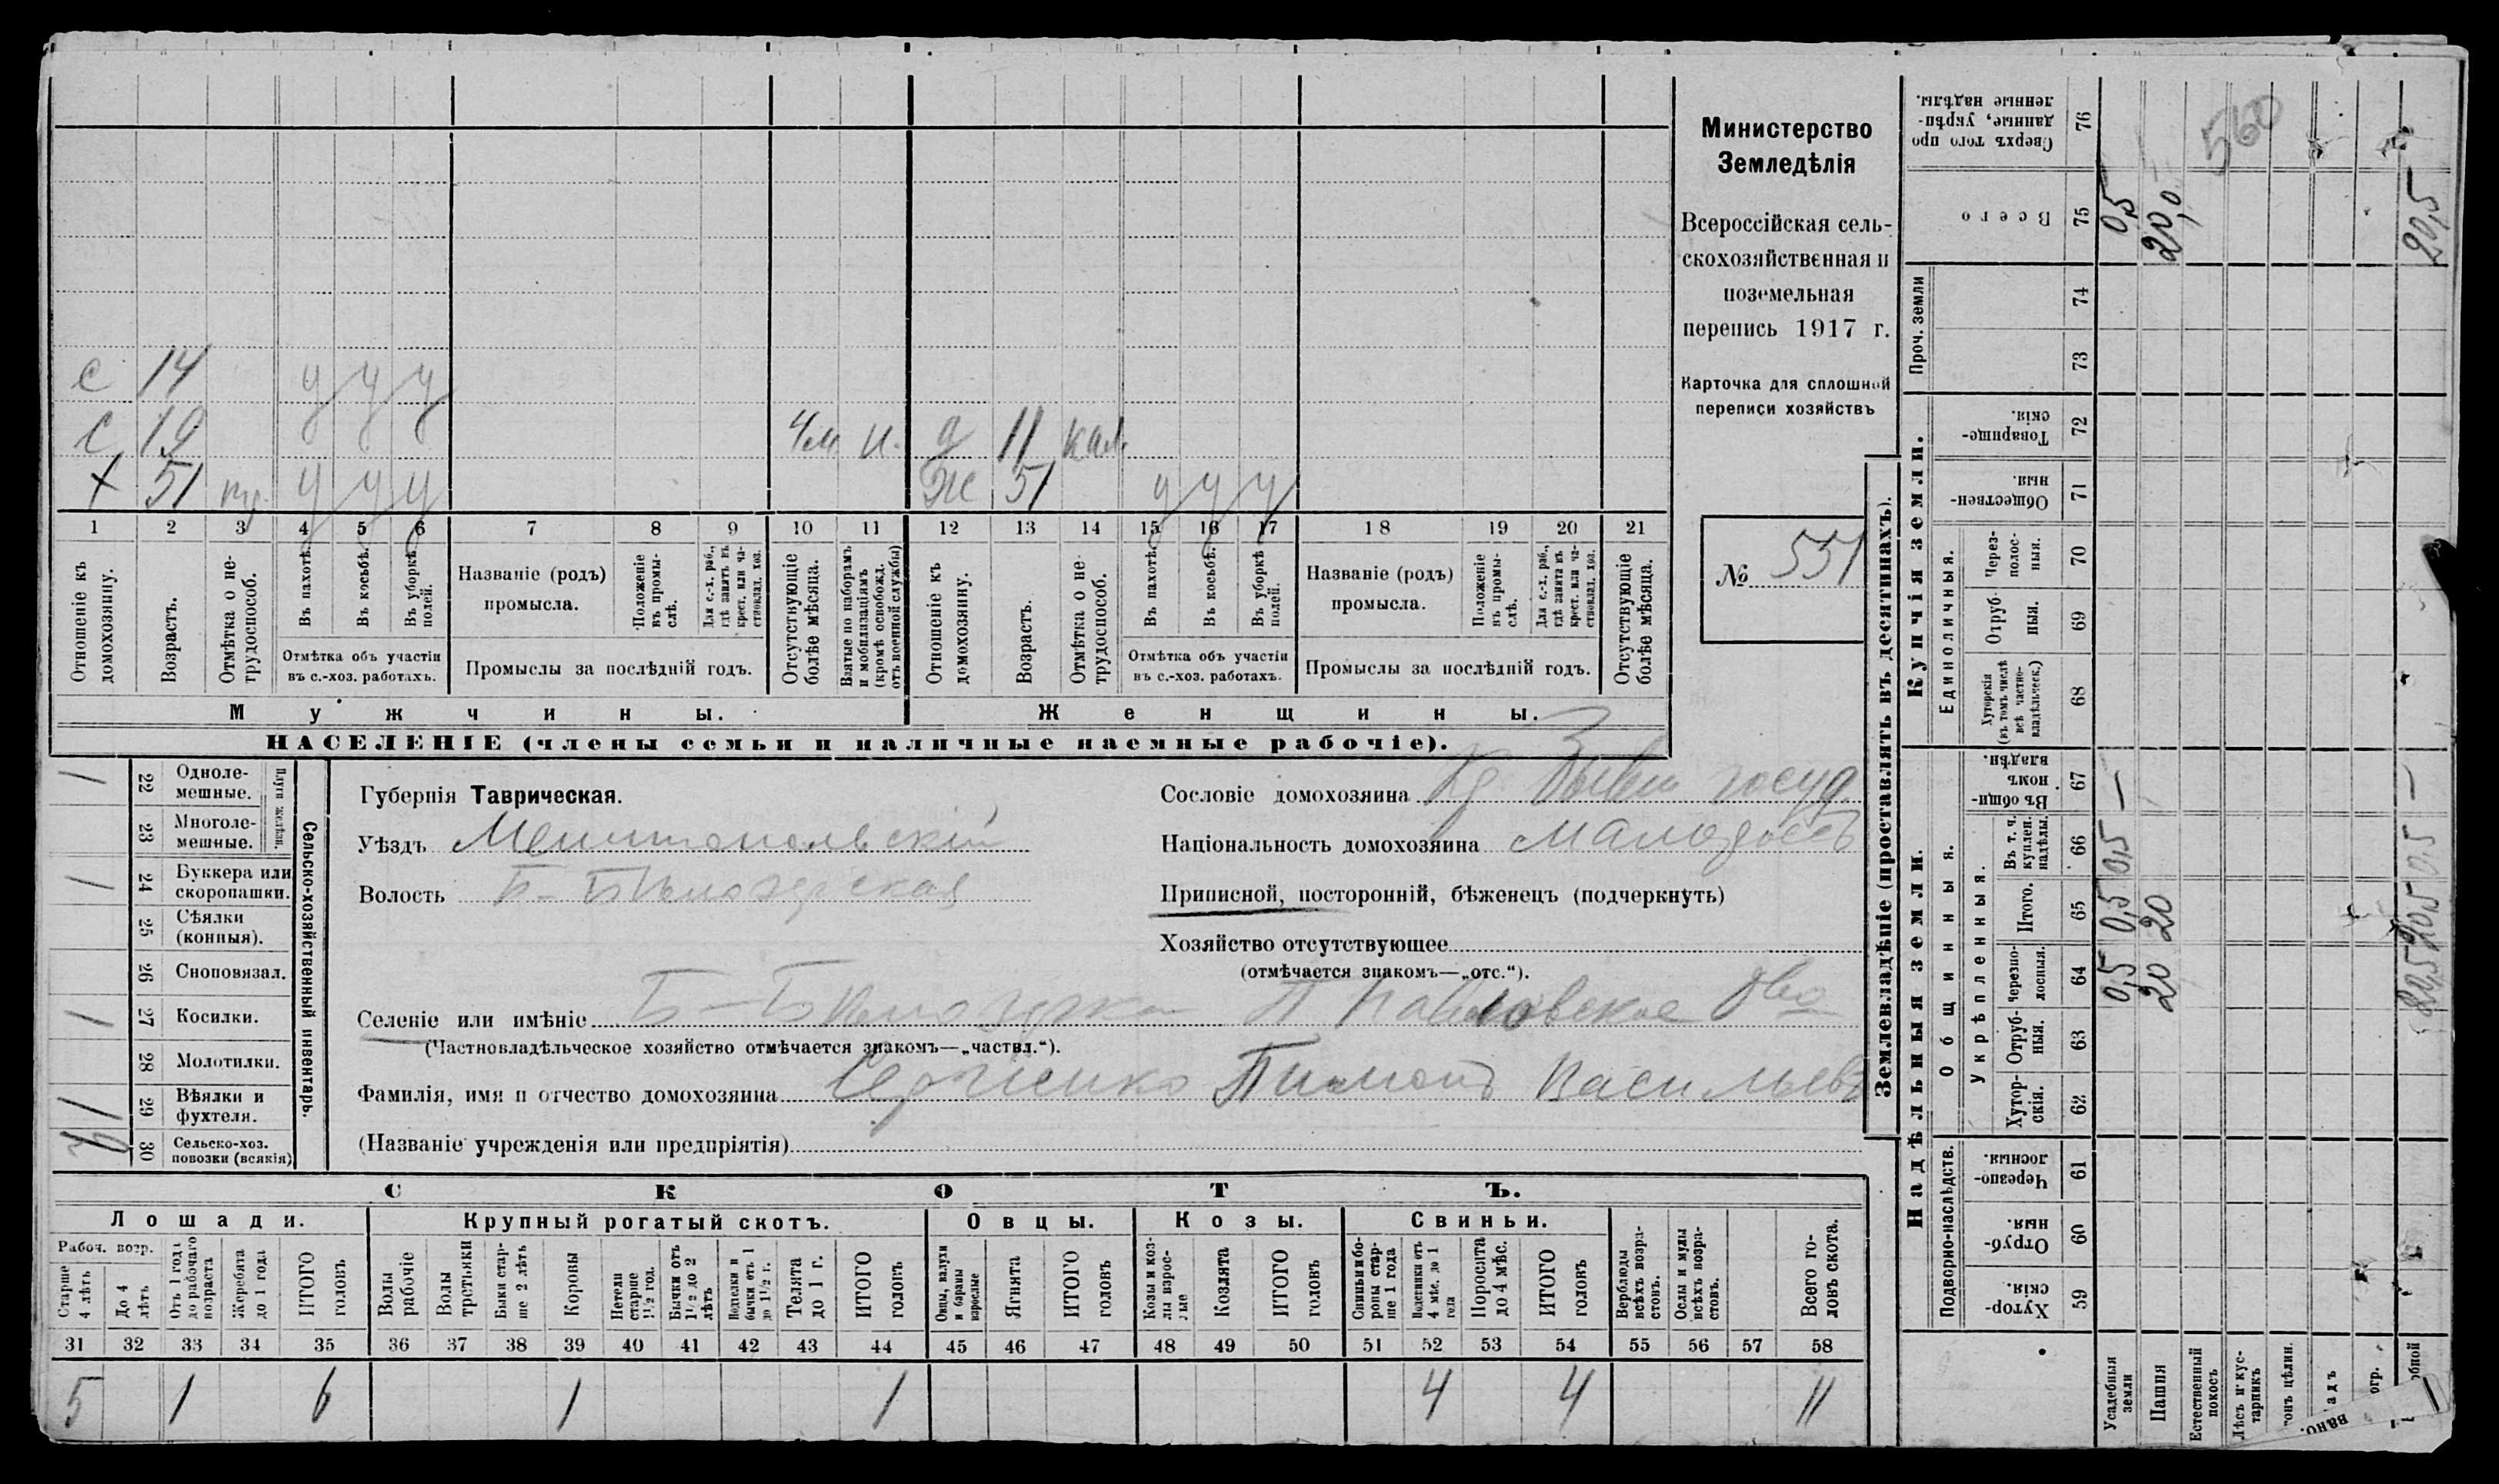 с 14 у у у
с 19 4м н. д 11 кал.
х 51 гр. у у у ж 51 у у у
1 2 3 4 5 6 7 8 9 10 11 12 13 14 15 16 17 18 19 20 21
Отношеніе къ домохозяину.
Возрастъ.
Отмѣтка о не-трудоспособ.
Въ пахотѣ.
Въ косьбѣ.
Въ уборкѣ полей.
Отмѣтка объ участіи
въ с.-хоз. работахъ.
Названіе (родъ)
промысла.
Положеніе въ промы-слѣ.
Для с.-х. раб., гдѣ занятъ въ крест. или ча-стновлад. хоз.
Промыслы за послѣдній годъ.
Отсутствующіе болѣе мѣсяца.
Взятые по наборамъ и мобилизаціямъ (кромѣ освобожд. отъ военной службы)
Отношеніе къ домохозяину.
Возрастъ.
Отмѣтка о не-трудоспособ.
Въ пахотѣ.
Въ косьбѣ.
Въ уборкѣ полей.
Отмѣтка объ участіи
въ с.-хоз. работахъ.
Названіе (родъ)
промысла.
Положеніе въ промы-слѣ.
Для с.-х. раб., гдѣ занята въ крест. или ча-стновлад. хоз.
Промыслы за послѣдній годъ.
Отсутствующіе болѣе мѣсяца.
Мужчины.
Женщины.
НАСЕЛЕНІЕ (члены семьи и наличные наемные рабочіе).
Министерство
Земледѣлія
Всероссійская сель-
скохозяйственная и
поземельная
перепись 1917 г.
Карточка для сплошной
переписи хозяйствъ
№ 551
Сельско-хозяйственный инвентарь.
Плуги желѣзн.
1 22 Одноле-мешные.
23 Многоле-мешные.
1 24 Буккера или скоропашки.
25 Сѣялки (конныя).
26 Сноповязал.
1 27 Косилки.
28 Молотилки.
1 29 Вѣялки и фухтеля.
30 Сельско-хоз. повозки (всякія)
Губернія Таврическая.
Уѣздъ Мелитопольскій
Волость Б-Бѣлозерская
Сословіе домохозяина Кр. бывш госуд.
Національность домохозяина малоросъ
Приписной, посторонній, бѣженецъ (подчеркнуть)
Хозяйство отсутствующее
(отмѣчается знакомъ—„отс.“).
Селеніе или имѣніе Б-Бѣлозерка П Павловское О-во
(Частновладѣльческое хозяйство отмѣчается знакомъ—„частвл.“).
Фамилія, имя и отчество домохозяина Сергіенко Пимонъ Васильевъ
(Названіе учрежденія или предпріятія)
СКОТЪ.
Лошади. Крупный рогатый скотъ. Овцы. Козы. Свиньи.
Рабоч. возр.
Старше 4 лѣтъ
До 4 лѣтъ
Отъ 1 года до рабочаго возраста
Жеребята до 1 года
ИТОГО головъ
Волы рабочіе
Волы третьяки
Быки стар-ше 2 лѣтъ
Коровы
Нетели старше 1½ год.
Бычки отъ 1½ до 2 лѣтъ
Подтелки и бычки отъ 1 до 1½ г.
Телята до 1 г.
ИТОГО головъ
Овцы, валухи и бараны взрослые
Ягнята
ИТОГО головъ
Козы и коз-лы взрос-лые
Козлята
ИТОГО головъ
Свиньи и бо-ровы стар-ше 1 года
Подсвинки отъ 4 мѣс. до 1 года
Поросята до 4 мѣс.
ИТОГО головъ
Верблюды всѣхъ возра-стовъ.
Ослы и мулы всѣхъ возра-стовъ.
Всего го-ловъ скота.
31 32 33 34 35 36 37 38 39 40 41 42 43 44 45 46 47 48 49 50 51 52 53 54 55 56 57 58
5 1 6 1 1 4 4 11
Землевладѣніе (проставлять въ десятинахъ).
Надѣльныя земли.
Купчія земли.
Проч. земли
Подворно-наслѣдств.
Общинныя.
Укрѣпленныя.
Единоличныя.
59 Хутор-скія.
60 Отруб-ныя.
61 Черезпо-лосныя.
62 Хутор-скія.
63 Отруб-ныя.
64 Черезпо-лосныя.
65 Итого.
66 Въ т. ч. куплен. надѣлы.
67 Въ общи-номъ владѣн.
68 Хуторскія (въ томъ числѣ всѣ частно-владѣльческ.)
69 Отруб-ныя.
70 Через-полос-ныя.
71 Обществен-ныя.
72 Товарище-скія.
73
74
75 Всего
76 Сверхъ того про данные, укрѣп-ленные надѣлы.
Усадебныя земли 0,5 0,5 0,5 — 0,5
Пашня 20 20 20,0
Естественный покосъ
Лѣсъ и кус-тарникъ
20,5 20,5 0,5 — 20,5
560